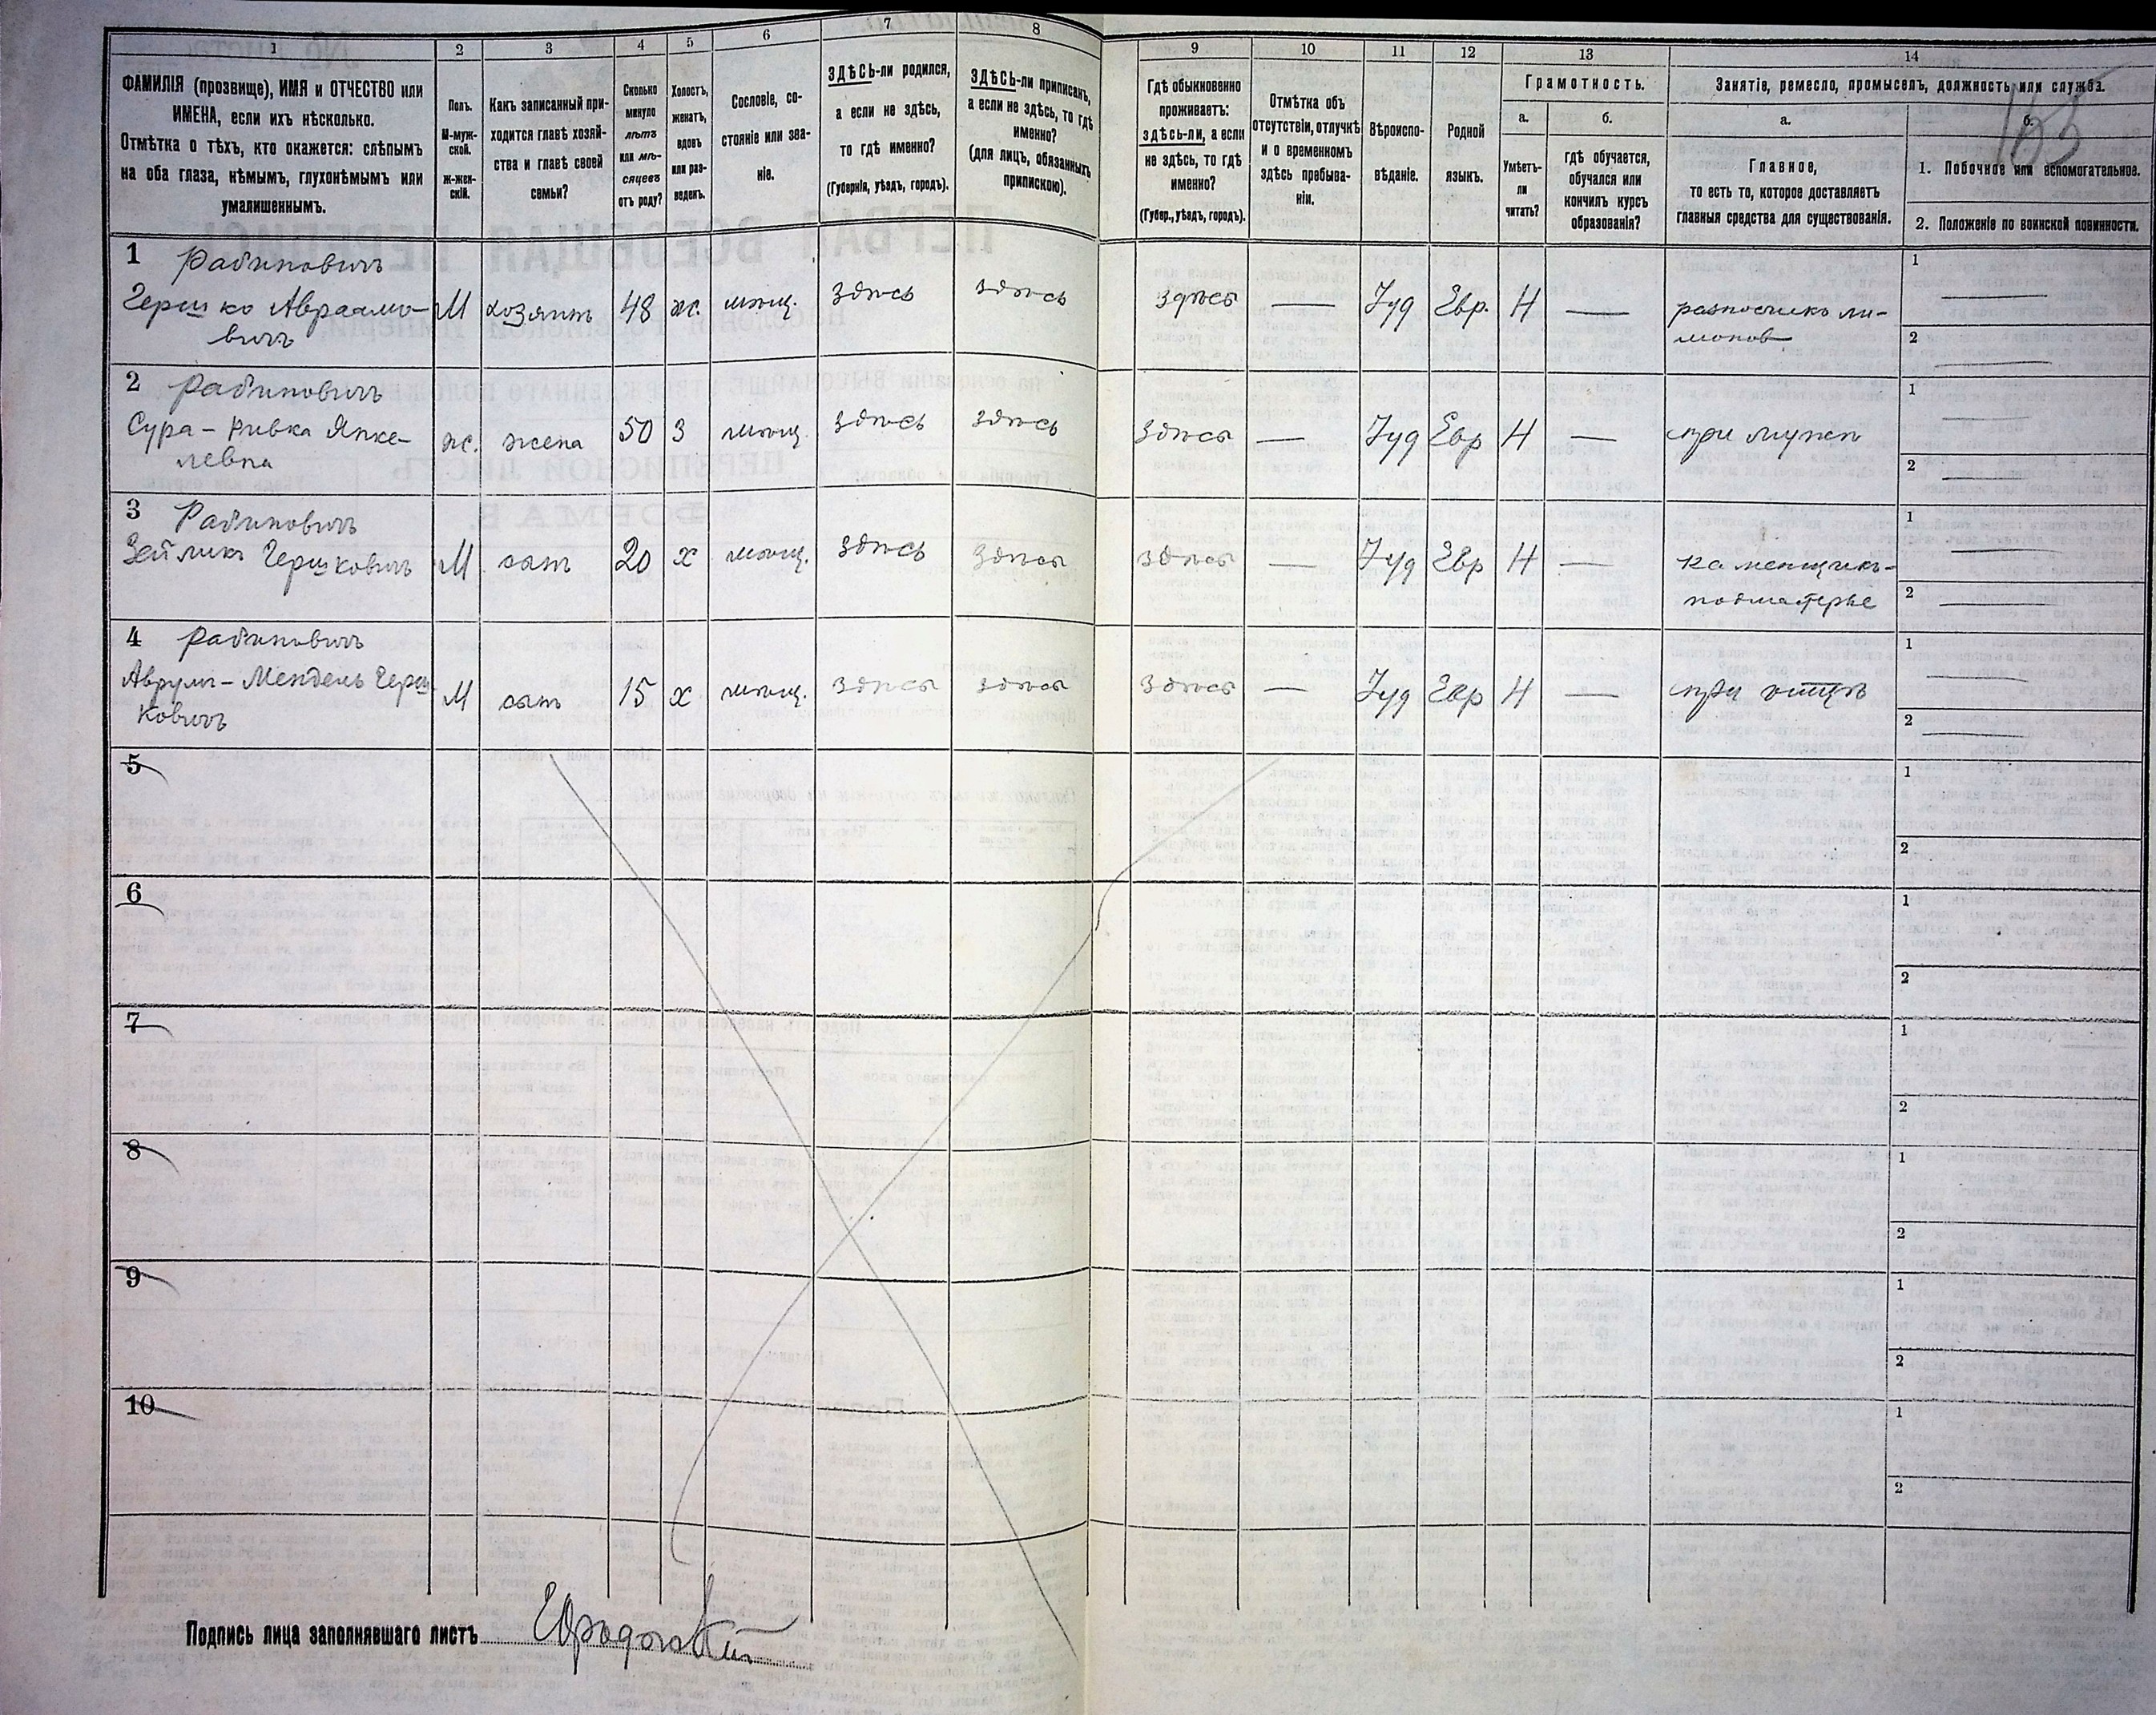 1
2
3
4
5
6
7
8
9
10
11
12
13
14
165
ФАМИЛІЯ (прозвище), ИМЯ и ОТЧЕСТВО или
ИМЕНА, если ихъ нѣсколько.
Отмѣтка о тѣхъ, кто окажется: слѣпымъ
на оба глаза, нѣмымъ, глухонѣмымъ или
умалишеннымъ.
Полъ.
М-муж-
ской.
Ж-жен-
скій.
Какъ записанный при-
ходится главѣ хозяй-
ства и главѣ своей
семьи?
Сколько
минуло
лѣтъ
или мѣ-
сяцевъ
отъ роду?
Холостъ,
женатъ,
вдовъ
или раз-
веденъ.
Сословіе, со-
стояніе или зва-
ніе.
ЗДѢСЬ-ли родился,
а если не здѣсь,
то гдѣ именно?
(Губернія, уѣздъ, городъ).
ЗДѢСЬ-ли приписанъ,
а если не здѣсь, то гдѣ
именно?
(для лицъ, обязанныхъ
припискою).
Гдѣ обыкновенно
проживаетъ:
здѣсь-ли, а если
не здѣсь, то гдѣ
именно?
(Губер., уѣздъ, городъ).
Отмѣтка объ
отсутствіи, отлучкѣ
и о временномъ
здѣсь пребыва-
ніи.
Вѣроиспо-
вѣданіе.
Родной
языкъ.
Грамотность.
а.
Умѣетъ-
ли
читать?
б.
гдѣ обучается,
обучался или
кончилъ курсъ
образованія?
Занятіе, ремесло, промыселъ, должность или служба.
а.
Главное,
то есть то, которое доставляетъ
главныя средства для существованія.
б.
1. Побочное или вспомогательное.
2. Положеніе по воинской повинности.
1 Рабиновичъ
Гершко Авраамо-
вичъ
М
хозяинъ
48
ж.
мѣщ.
здѣсь
здѣсь
здѣсь
—
Іуд
Евр.
Н
—
разносчикъ ли-
монов
1 —
2 —
2 Рабиновичъ
Сура-Ривка Янке-
левна
ж.
жена
50
З
мѣщ
здѣсь
здѣсь
здѣсь
—
Іуд
Евр
Н
—
при мужѣ
1 —
2 —
3 Рабиновичъ
Зейликъ Гершковичъ
М
сынъ
20
х
мѣщ.
здѣсь
здѣсь
здѣсь
—
Іуд
Евр
Н
—
каменщикъ-
подмастерье
1 —
2 —
4 Рабиновичъ
Аврумъ-Мендель Герш-
ковичъ
М
сынъ
15
х
мѣщ.
здѣсь
здѣсь
здѣсь
—
Іуд
Евр
Н
—
при отцѣ
1 —
2 —
5
1
2
6
1
2
7
1
2
8
1
2
9
1
2
10
1
2
Подпись лица заполнявшаго листъ